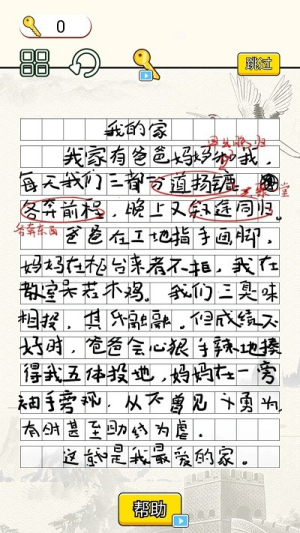 0
跳过
我的家
我家有爸爸妈妈和我,
每天我们三都分道扬镳
各奔前程,晚上又殊途同归。
各奔东西
爸爸在工地指手画脚,
妈妈在柜台来者不拒,我在
教室呆若木鸡。我们三臭味
相投,其乐融融。但成绩不
好时,爸爸会心狠手辣地揍
得我五体投地,妈妈在一旁
袖手旁观,从不曾见义勇为,
有时甚至助纣为虐。
这就是我最爱的家。
帮助